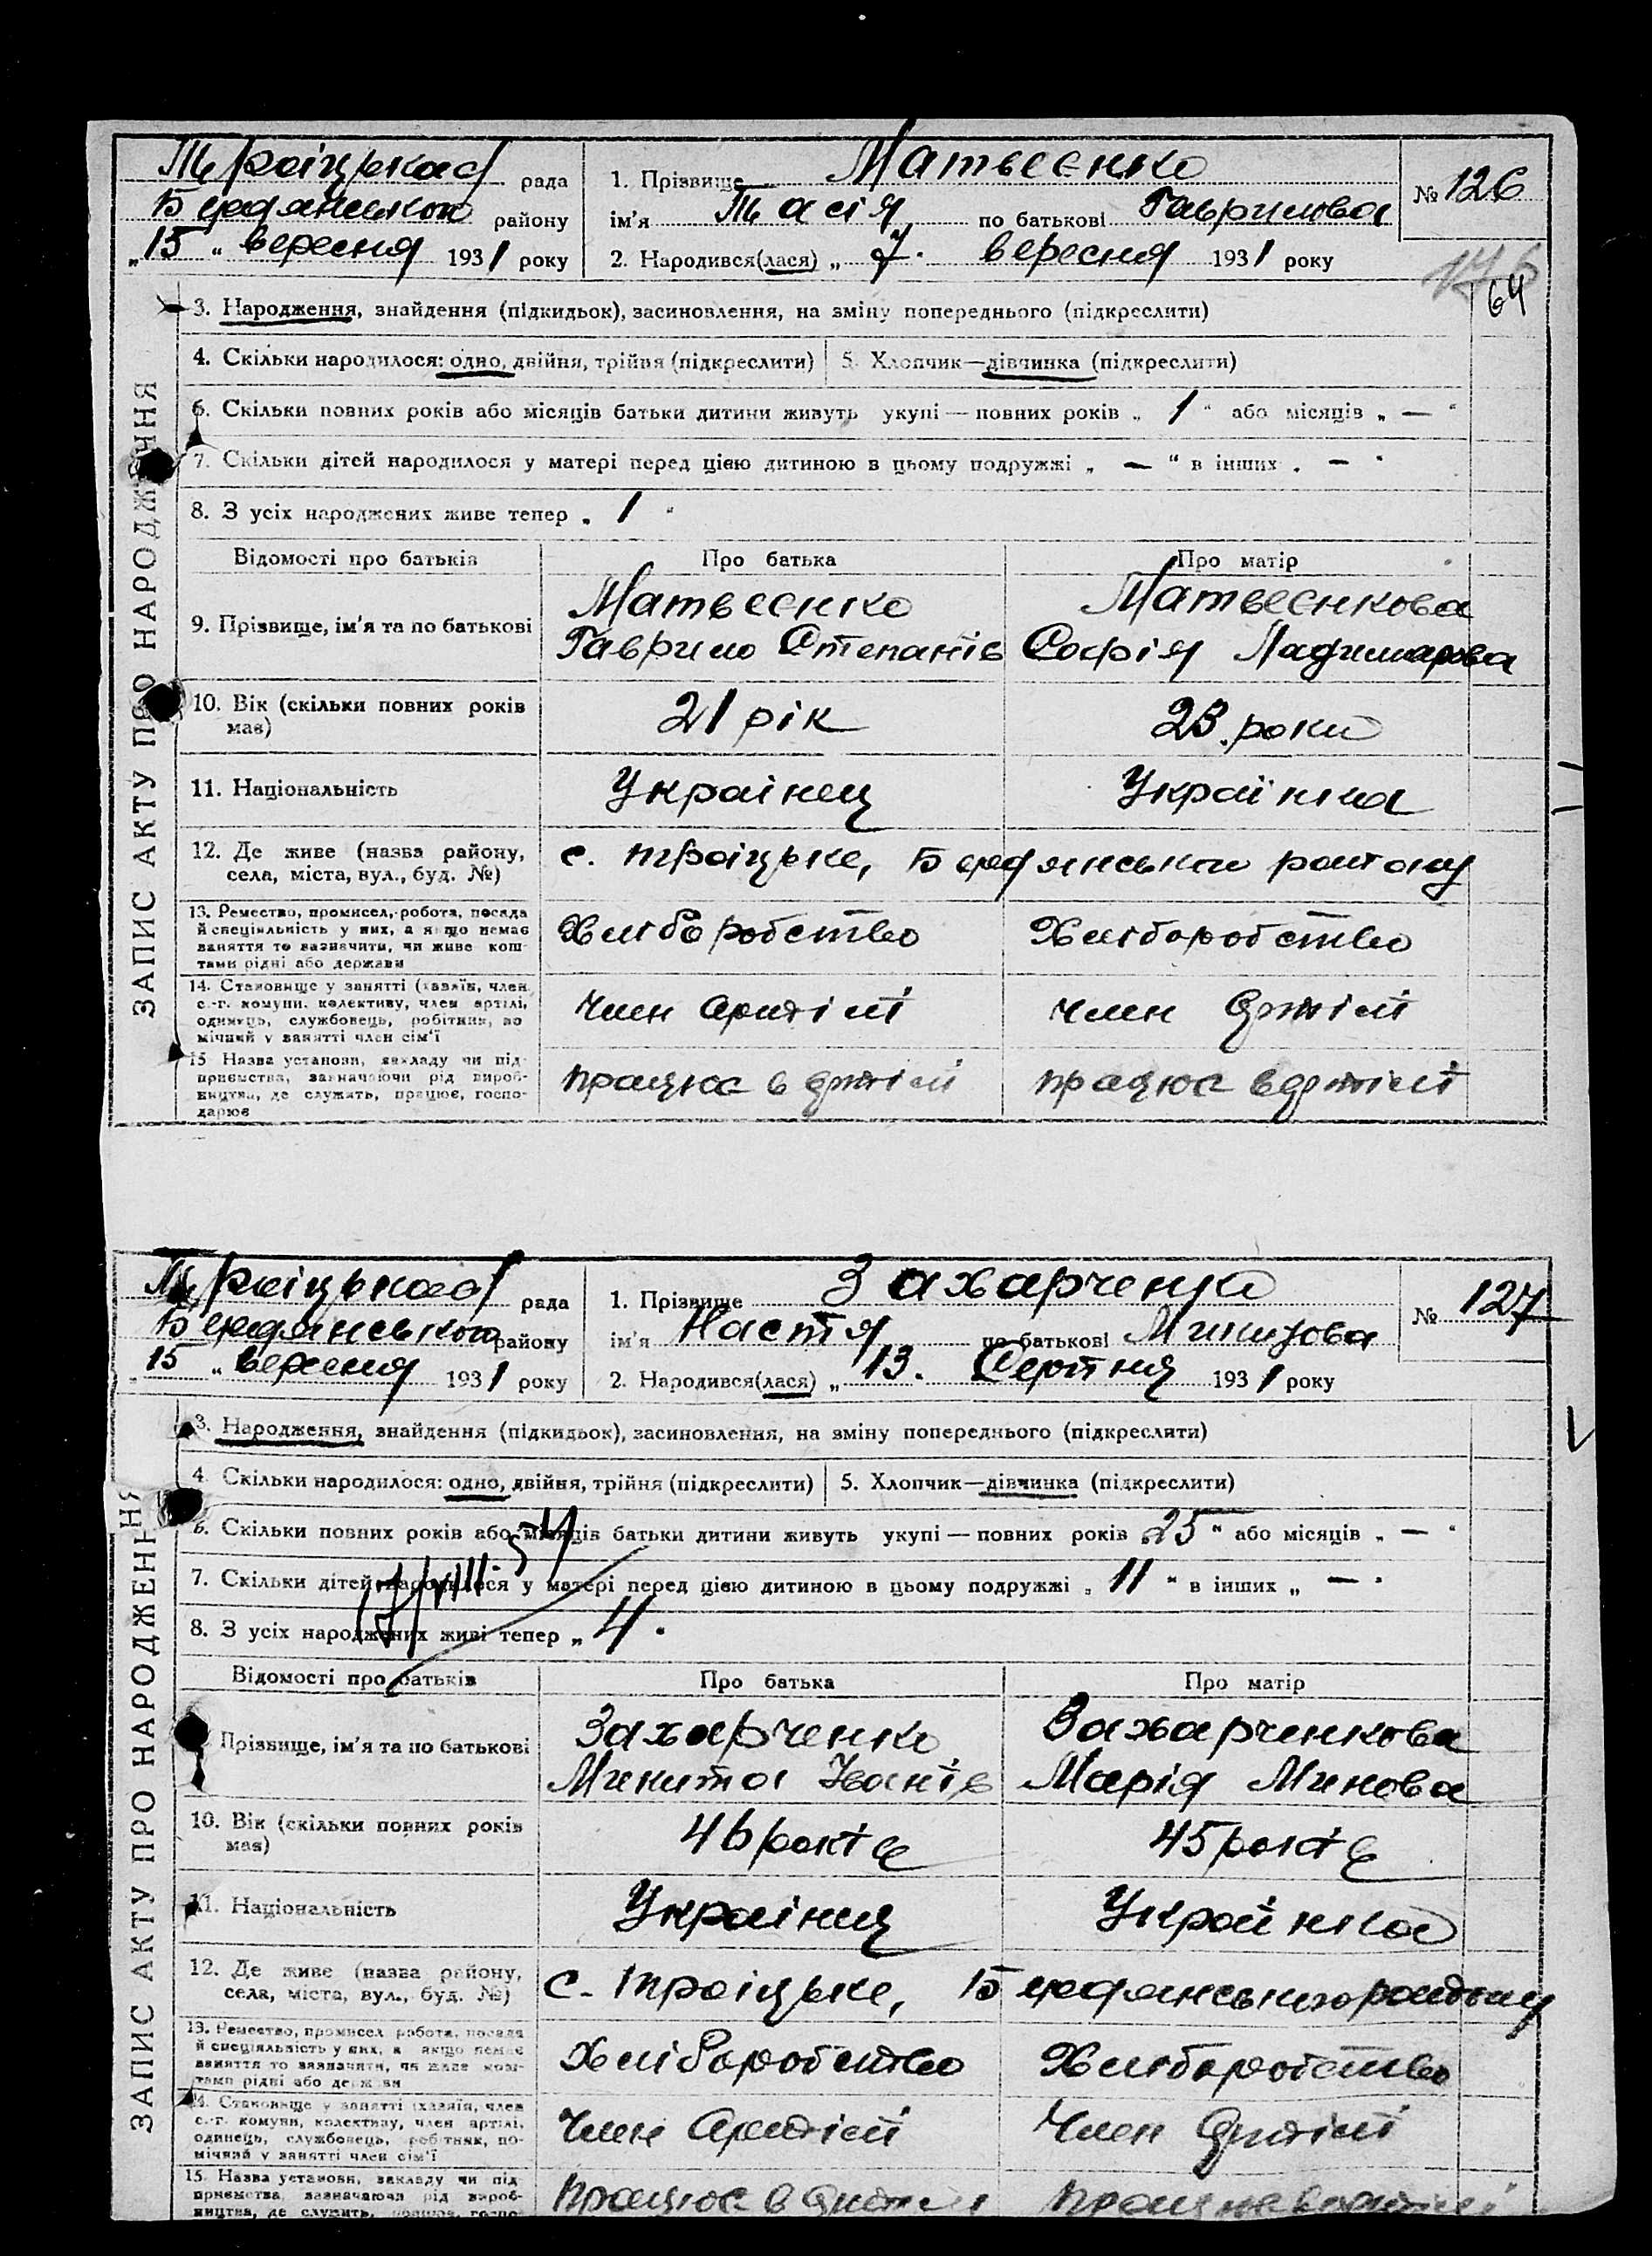 Троіцька рада
Бердянського району
„15“ вересня 1931 року
1. Прізвище Матвєєнко
ім'я Тасія по батькові Гаврилова
2. Народився(лася) „7. вересня 1931 року
№ 126
176
64
ЗАПИС АКТУ ПРО НАРОДЖЕННЯ
3. Народження, знайдення (підкидьок), засиновлення, на зміну попереднього (підкреслити)
4. Скільки народилося: одно, двійня, трійня (підкреслити) 5. Хлопчик—дівчинка (підкреслити)
6. Скільки повних років або місяців батьки дитини живуть укупі — повних років „1“ або місяців „—“
7. Скільки дітей народилося у матері перед цією дитиною в цьому подружжі „—“ в інших „—“
8. З усіх народжених живе тепер „1“
Відомості про батьків Про батька Про матір
9. Прізвище, ім'я та по батькові
Матвеєнко Матвеєнкова
Гаврило Степанів Софія
10. Вік (скільки повних років має) 21 рік 23. роки
11. Національність Українец Українка
12. Де живе (назва району,
села, міста, вул., буд. №)
с. Троіцьке, Бердянського району
13. Ремество, промисел, робота, посада
й спеціяльність у них, а якщо немає
заняття то зазначити, чи живе кош-
тами рідні або держави
Хліборобство Хліборобство
14. Становище у занятті (хазяїн, член
с.-г. комуни, колективу, член артілі,
одинець, службовець, робітник, по-
мічний у занятті член сім'ї
Член Артілі Член Артілі
15 Назва установи, закладу чи під-
приємства, зазначаючи рід вироб-
ництва, де служить, працює, госпо-
дарює
працює в Артілі працює в Артілі
Троіцька рада
Бердянського району
15 „ вересня 1931 року
1. Прізвище Захарченко
ім'я Настя по батькові Микитова
2. Народився(лася) „13. Серпня 1931 року
№ 127
ЗАПИС АКТУ ПРО НАРОДЖЕННЯ
3. Народження, знайдення (підкидьок), засиновлення, на зміну попереднього (підкреслити)
4. Скільки народилося: одно, двійня, трійня (підкреслити) 5. Хлопчик—дівчинка (підкреслити)
6. Скільки повних років або місяців батьки дитини живуть укупі — повних років 25“ або місяців „—“
7. Скільки дітей народилося у матері перед цією дитиною в цьому подружжі „11“ в інших „—“
8. З усіх народжених живі тепер „4.
Відомості про батьків Про батька Про матір
Прізвище, ім'я та по батькові
Захарченко Захарченкова
Микита Іванів Марія Минова
10. Вік (скільки повних років має) 46 років 45 років
11. Національність Українец Українка
12. Де живе (назва району,
села, міста, вул., буд. №)
с. Троіцьке, Бердянського району
13. Ремество, промисел робота, посада
й спеціяльність у них, а якщо немає
заняття то зазначити, чи живе кош-
тами рідні або держави
Хліборобство Хліборобство
14. Становище у занятті (хазяїн, член
с.-г. комуни, колективу, член артілі,
одинець, службовець, робітник, по-
мічний у занятті член сім'ї
Член Артілі Член Артілі
15. Назва установи, закладу чи під-
приємства, зазначаючи рід вироб-
ництва, де служить, працює, госпо-
Працює в Артілі Працює в Артілі